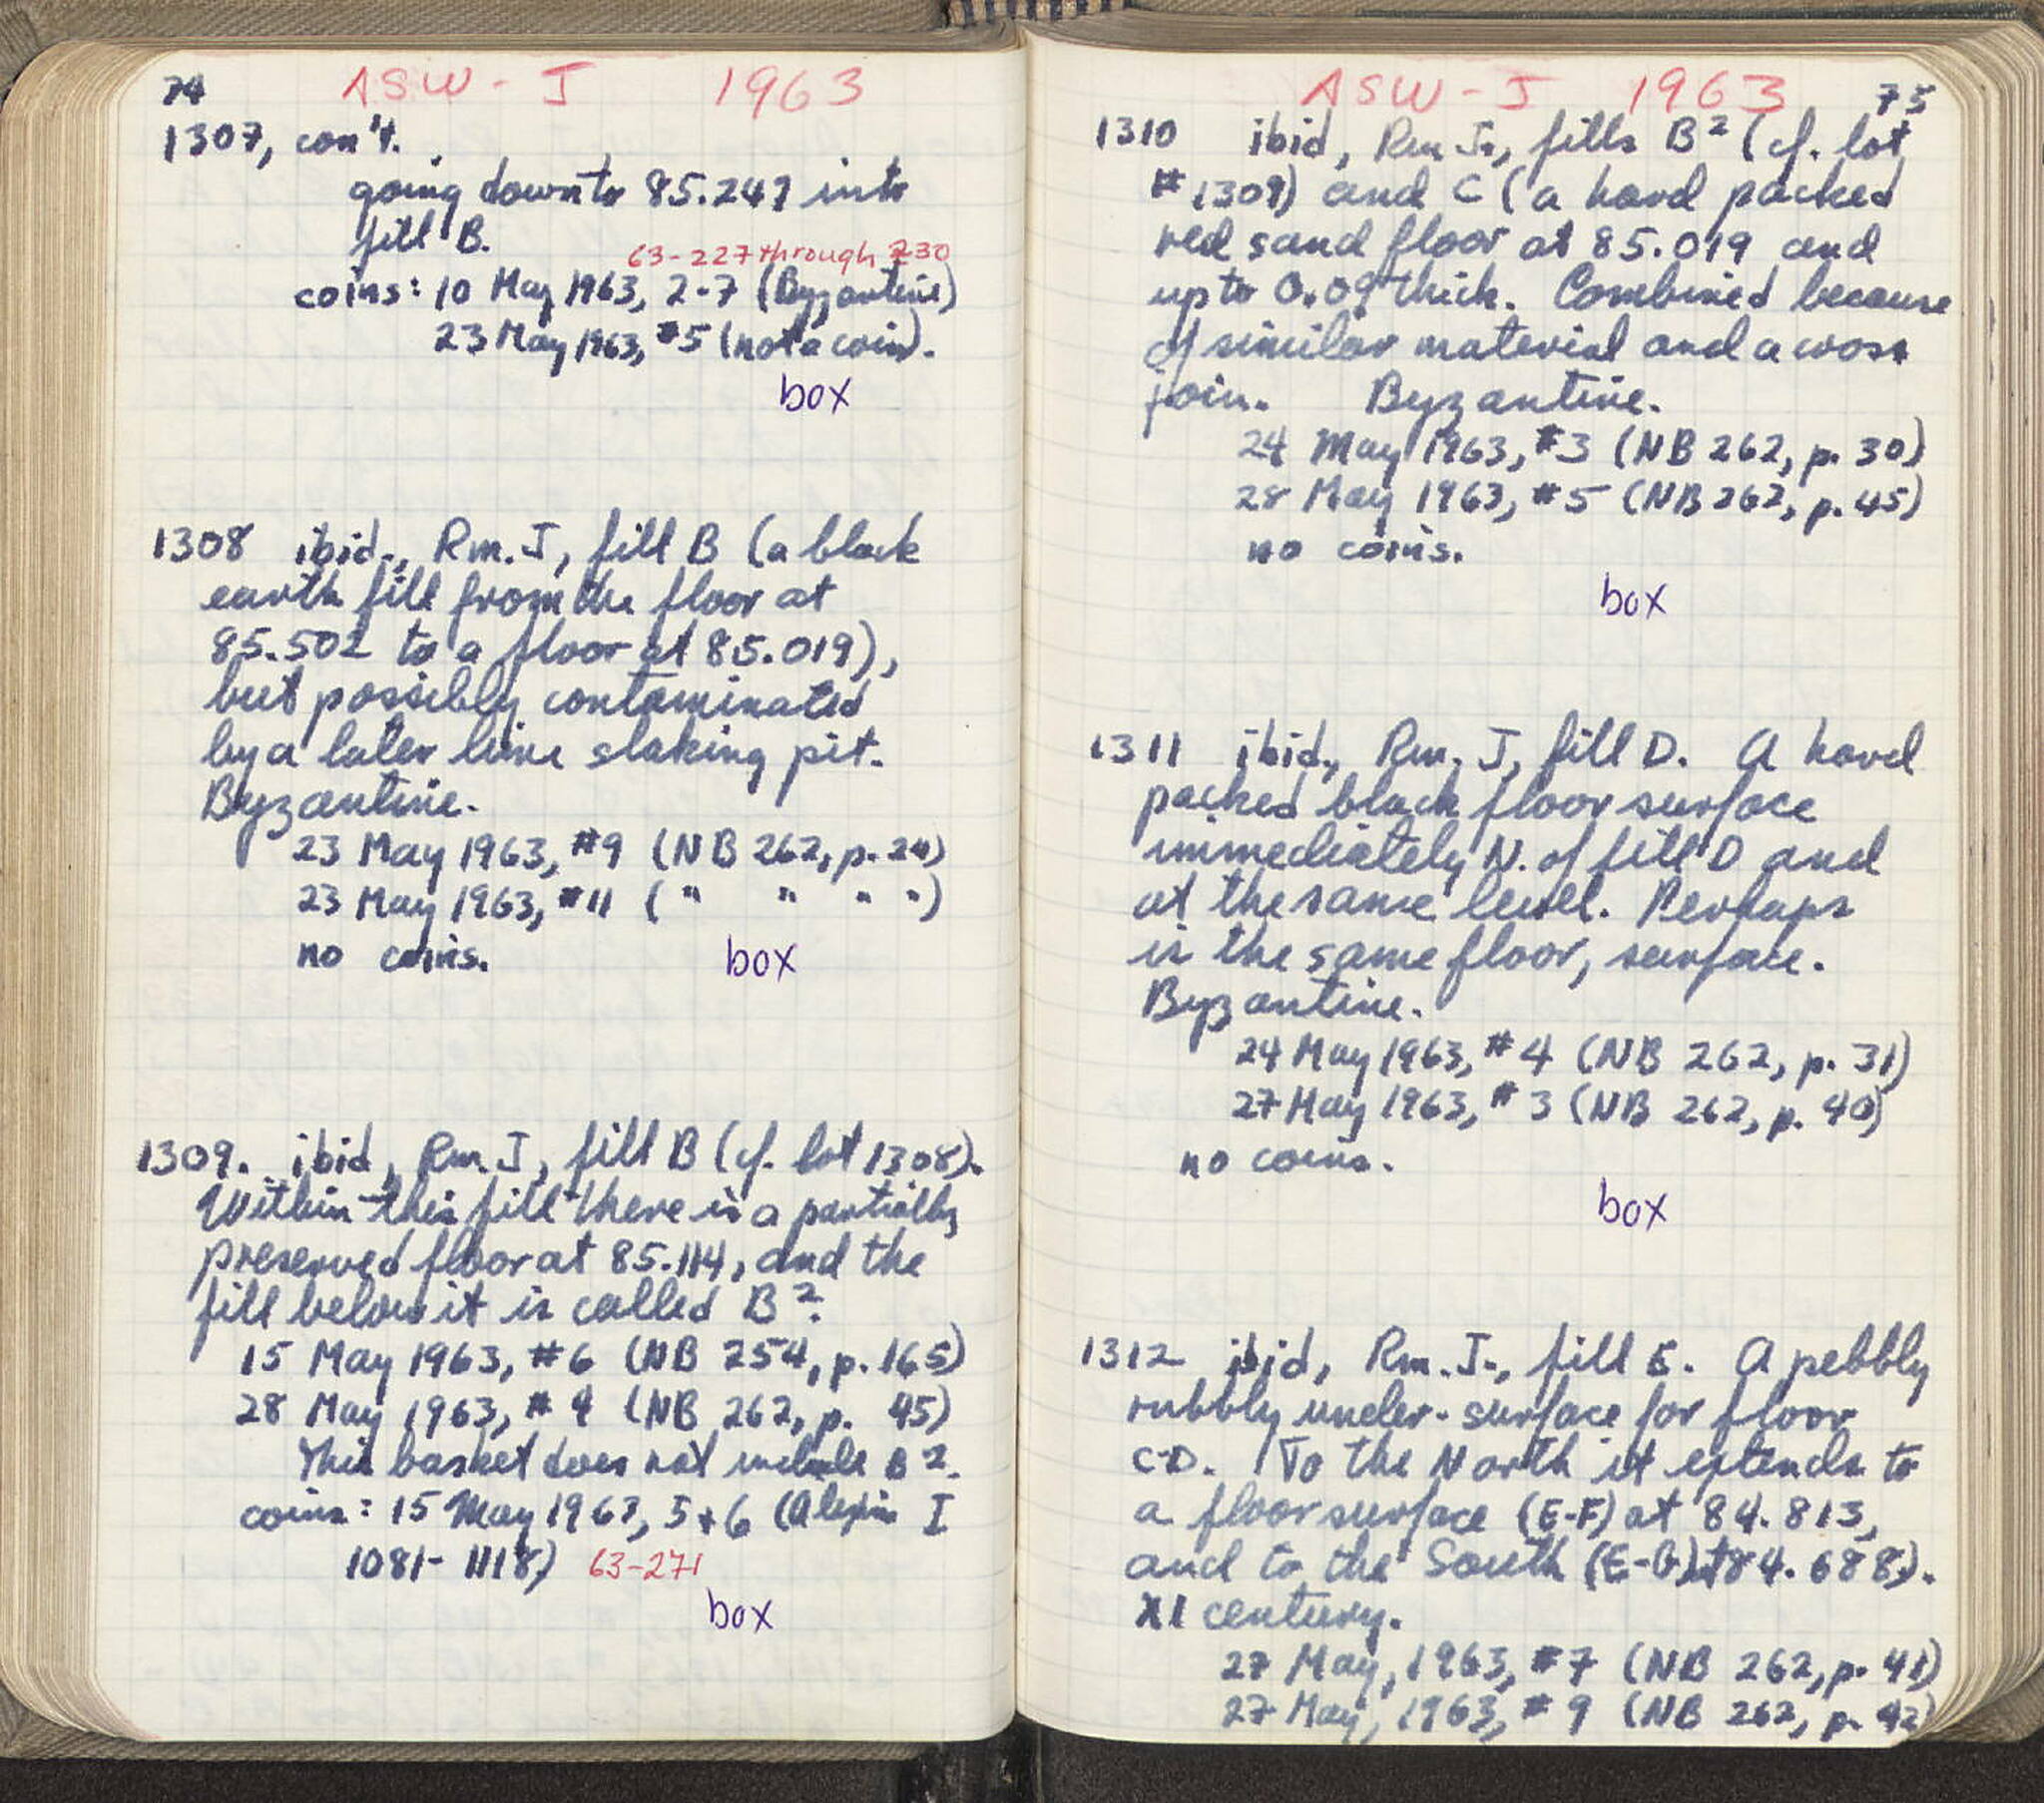 74 ASW - J 1963
1307, con't.
going down to 85.247 into
fill B.
63-227 through 230
coins: 10 May 1963, 2-7 (Byzantine)
23 May 1963, #5 (not a coin).
box
1308 ibid., Rm. J, fill B (a black
earth fill from the floor at
85.502 to a floor at 85.019),
but possibly contaminated
by a later lime slaking pit.
Byzantine.
23 May 1963, #9 (NB 262, p. 24)
23 May 1963, #11 ( " " " " )
no coins.
box
1309. ibid, Rm. J, fill B (cf. lot 1308).
Within this fill there is a partially
preserved floor at 85.114, and the
fill below it is called B².
15 May 1963, #6 (NB 254, p. 165)
28 May 1963, #4 (NB 262, p. 45)
This basket does not include B².
coins: 15 May 1963, 5+6 (Alexius I
1081-1118) 63-271
box
ASW - J 1963 75
1310 ibid, Rm J., fills B² (cf. lot
#1309) and C (a hard packed
red sand floor at 85.019 and
up to 0.09 thick. Combined because
of similar material and a cross
join. Byzantine.
24 May 1963, #3 (NB 262, p. 30)
28 May 1963, #5 (NB 262, p. 45)
no coins.
box
1311 ibid., Rm. J, fill D. A hard
packed black floor surface
immediately N. of fill D and
at the same level. Perhaps
is the same floor, surface.
Byzantine.
24 May 1963, #4 (NB 262, p. 31)
27 May 1963, #3 (NB 262, p. 40)
no coins.
box
1312 ibid, Rm. J., fill E. A pebbly
rubbly under-surface for floor
C-D. To the North it extends to
a floor surface (E-F) at 84.813,
and to the South (E-G) at 84.688).
XI century.
27 May, 1963, #7 (NB 262, p. 41)
27 May, 1963, #9 (NB 262, p. 42)